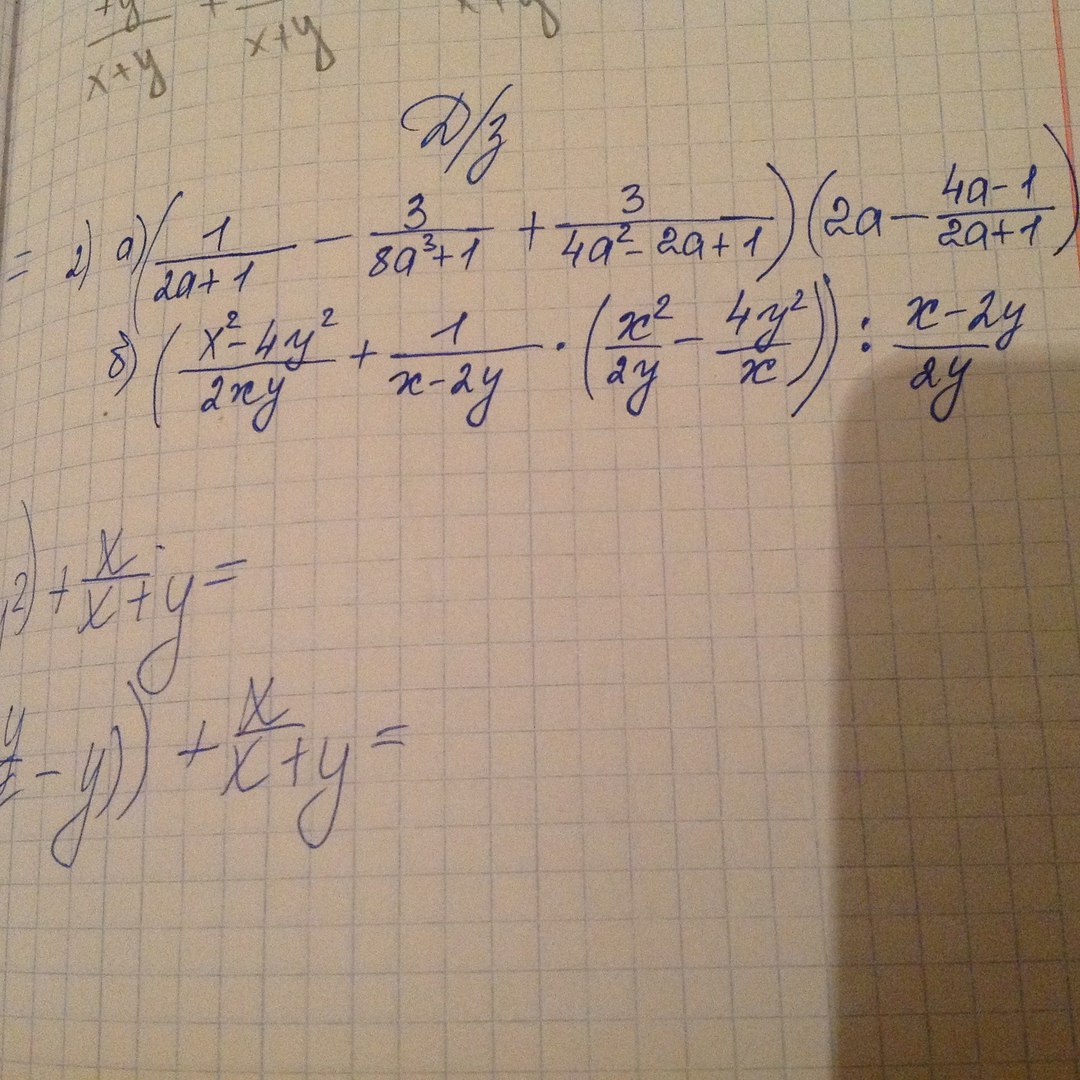 +y/(x+y) + /(x+y) x+y
Д/з
= 2) а) (1/(2a+1) - 3/(8a³+1) + 3/(4a²-2a+1)) (2a - (4a-1)/(2a+1))
б) ((x²-4y²)/(2xy) + 1/(x-2y) · (x²/(2y) - 4y²/x)) : (x-2y)/(2y)
²) + x/(x+y) =
y - y)) + x/(x+y) =